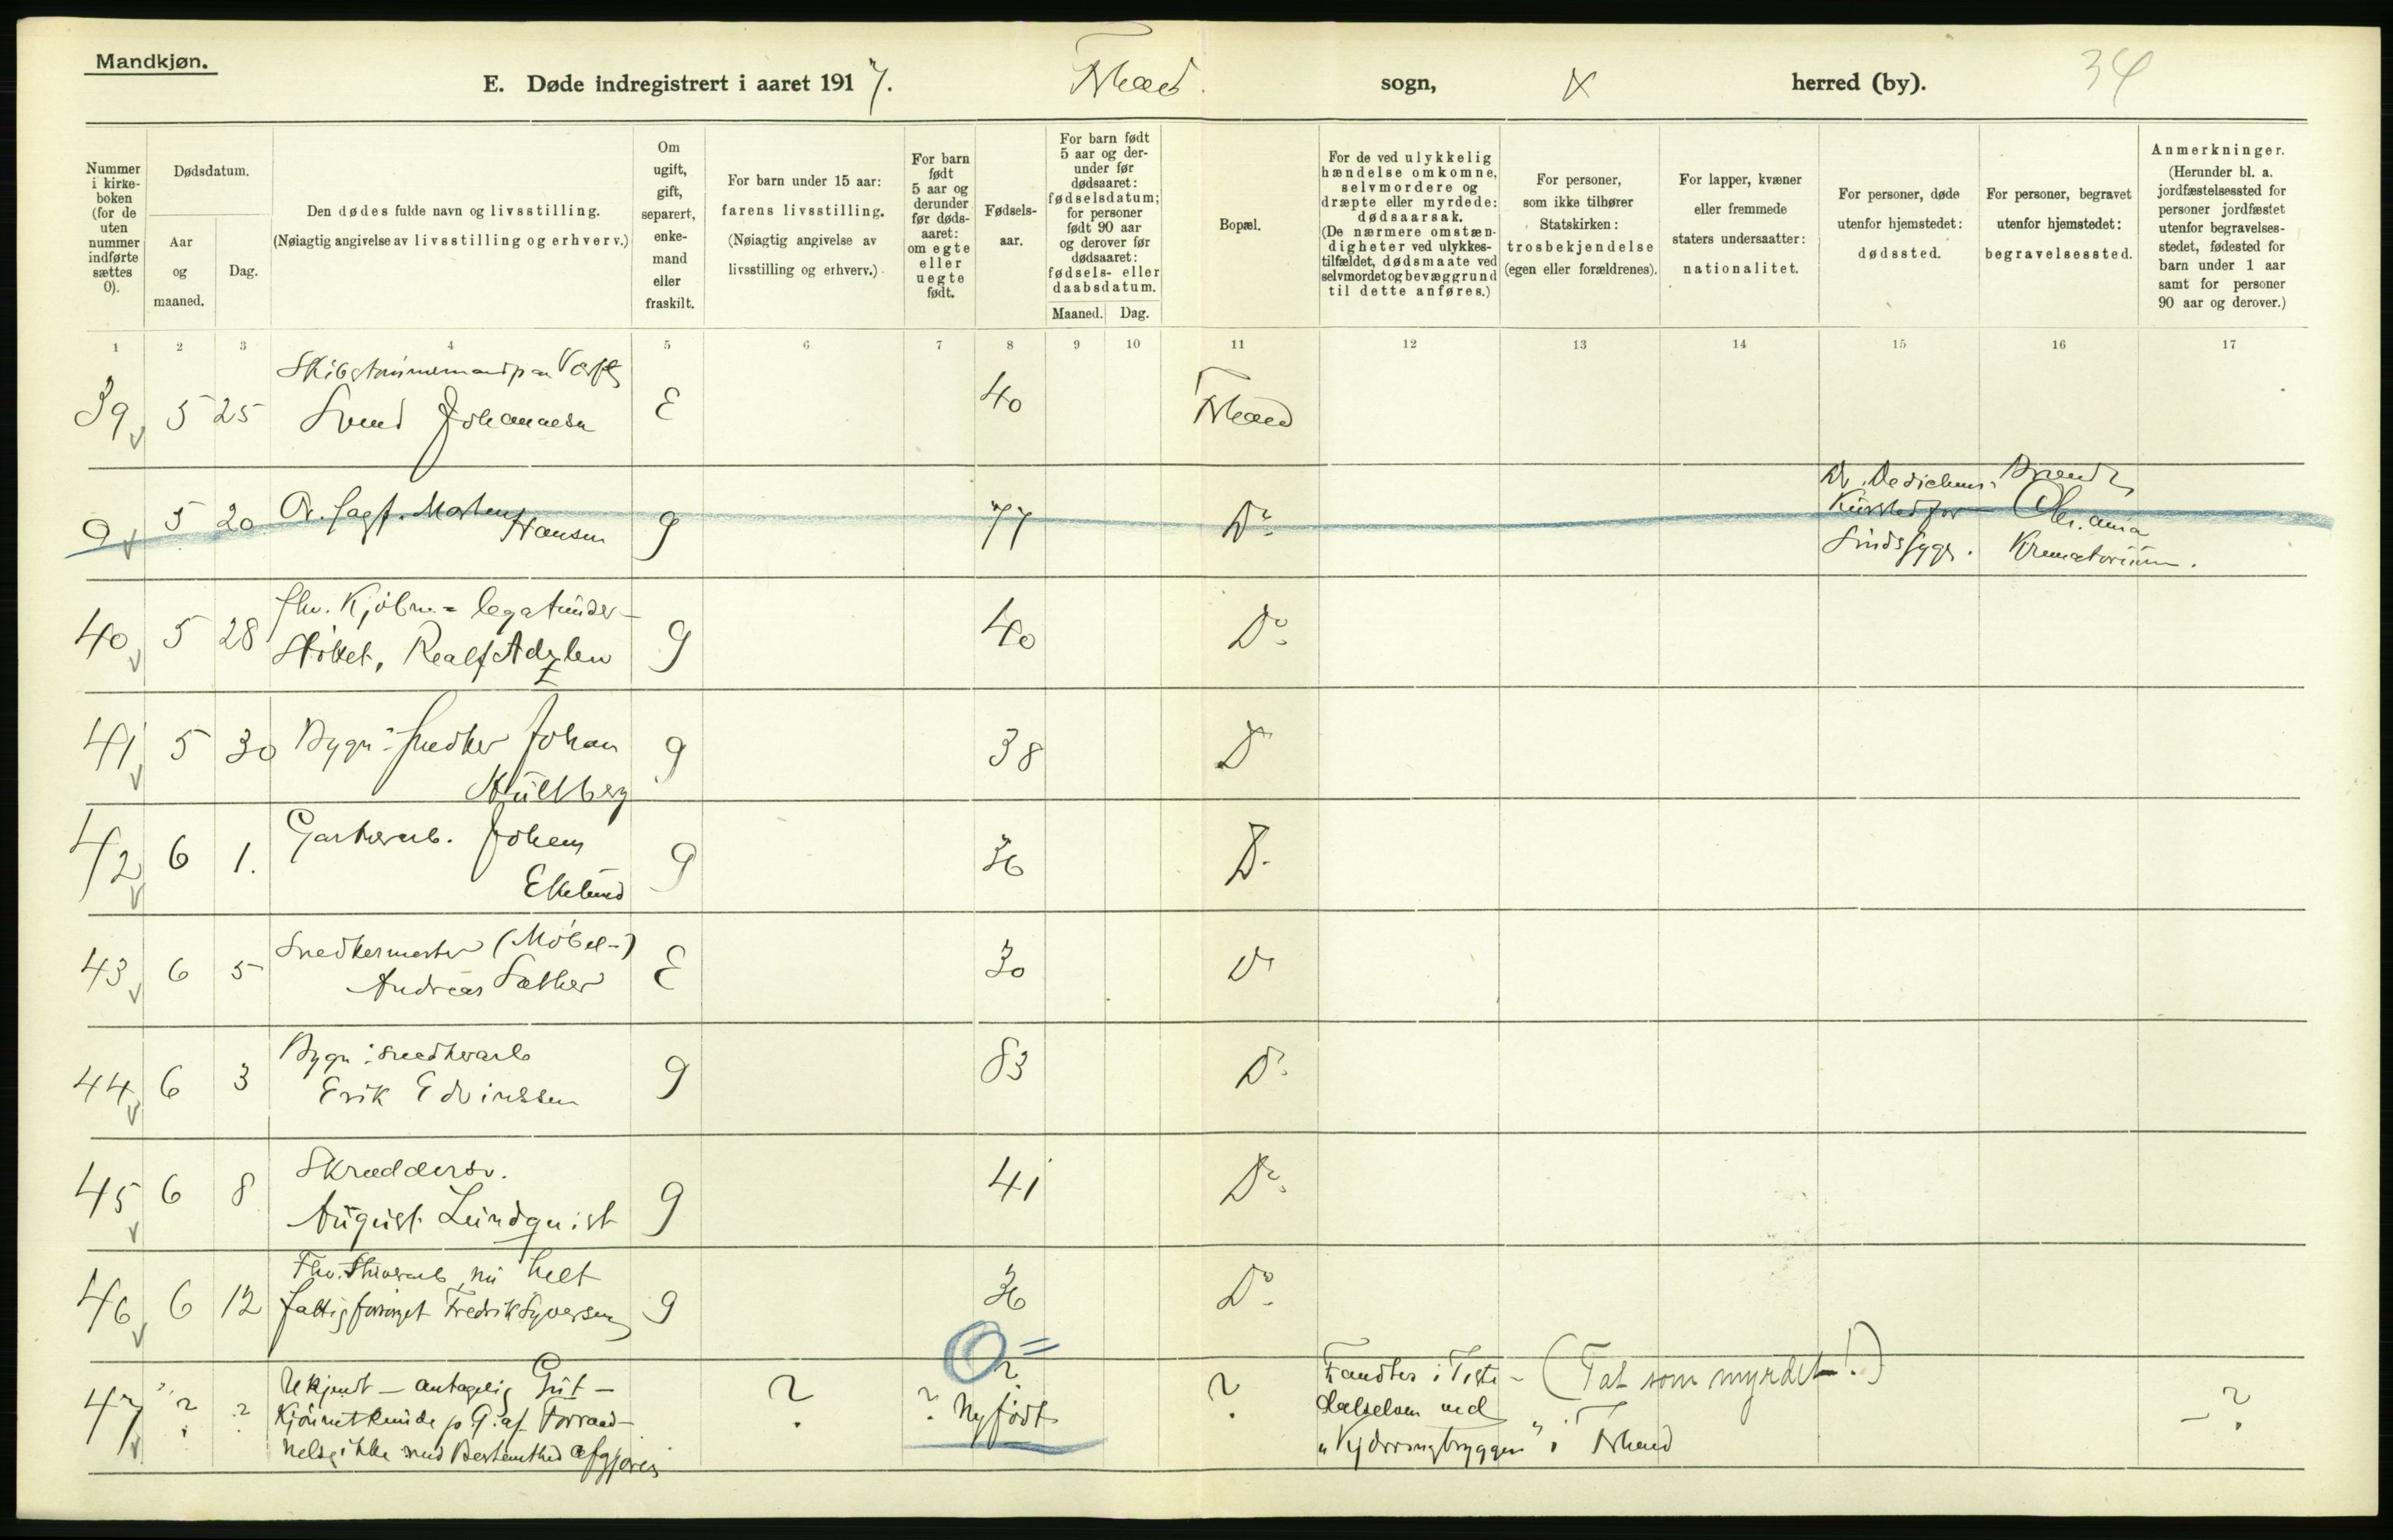 Mandkjøn.
E. Døde indregistrert i aaret 1917. Fhald. sogn, X herred (by). 34
Nummer i kirkeboken (for de uten nummer indførte sættes 0).
Dødsdatum.
Aar og maaned.
Dag.
Den dødes fulde navn og livsstilling.
(Nøiagtig angivelse av livsstilling og erhverv.)
Om ugift, gift, separert, enkemand eller fraskilt.
For barn under 15 aar:
farens livsstilling.
(Nøiagtig angivelse av
livsstilling og erhverv.)
For barn født 5 aar og derunder før dødsaaret: om egte eller uegte født.
Fødselsaar.
For barn født 5 aar og derunder før dødsaaret: fødselsdatum; for personer født 90 aar og derover før dødsaaret: fødsels- eller daabsdatum.
Maaned. Dag.
Bopæl.
For de ved ulykkelig hændelse omkomne, selvmordere og dræpte eller myrdede: dødsaarsak.
(De nærmere omstændigheter ved ulykkestilfældet, dødsmaate ved selvmordet og bevæggrund til dette anføres.)
For personer,
som ikke tilhører
Statskirken:
trosbekjendelse
(egen eller forældrenes).
For lapper, kvæner
eller fremmede
staters undersaatter:
nationalitet.
For personer, døde
utenfor hjemstedet:
dødssted.
For personer, begravet
utenfor hjemstedet:
begravelsessted.
Anmerkninger.
(Herunder bl. a.
jordfæstelsessted for
personer jordfæstet
utenfor begravelses-
stedet, fødested for
barn under 1 aar
samt for personer
90 aar og derover.)
1 2 3 4 5 6 7 8 9 10 11 12 13 14 15 16 17
Skibstømmermand paa Verft
39 5 25 Svend Johannesen E 40 Fhald
0 5 20 Ov. sagf. Morten Hansen g 77 Do. Dr. Dedichens Kursted for Sindssyge. Brændt Chr.ania Krematorium.
fhv. Kjøbm. - legatunder-
40 5 28 støttet, Realf Adelen g 40 Do.
41 5 30 Bygn:snedker Johan g 38 D
Kullberg
42 6 1. Gartnerarb. Johan g 36 D.
Eklund
Snedkermester (Møbel-)
43 6 5 Andreas Sæther E 30 D
Bygn:snedkerarb
44 6 3 Erik Edvinssen g 83 D.
Skrædders.
45 6 8 August Lundquist g 41 Do.
Fhv. Stuverarb, nu helt
46 6 12 fattigforsørget Fredrik Syversen g 36 Do.
47 ? ? Ukjendt - antagelig Gut - ? ? Nyfødt ? ? Fandtes i Tiste- (Tat som myrdet!)
Kjønnet kunde p. G. af Forraad-
nelse ikke med Bestemthed afgjøres
dalselven ved
"Kjærringbryggen" i Fhald
- ?